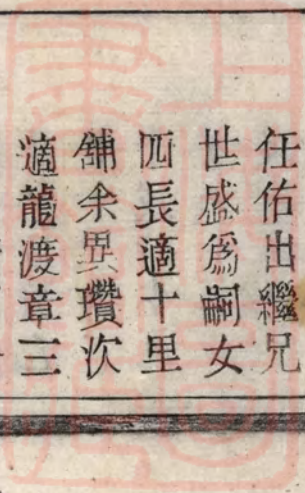 任佑出繼兄
世盛爲嗣女
四長適十里
鋪余異瓚次
適龍渡章三